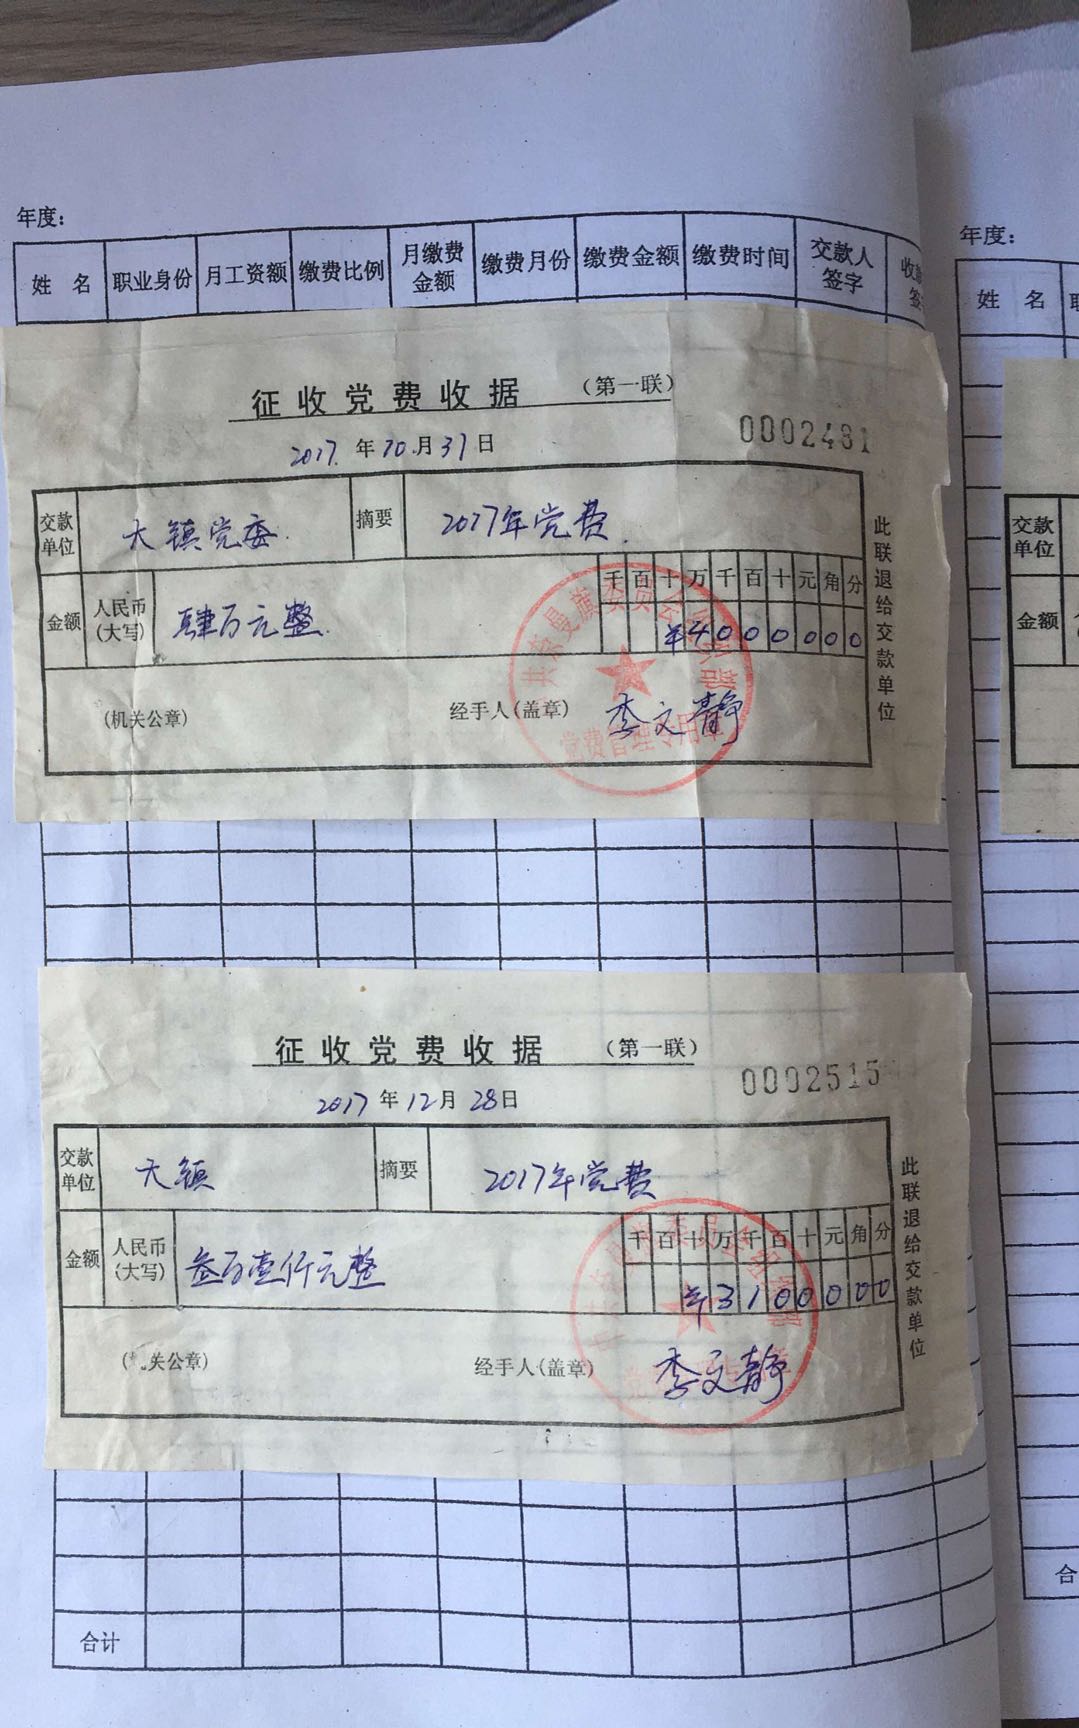 年度：
姓 名 职业身份 月工资额 缴费比例 月缴费金额 缴费月份 缴费金额 缴费时间 交款人签字
征收党费收据 （第一联）
0002481
2017年10月31日
交款单位 大镇党委 摘要 2017年党费
金额 人民币(大写) 肆万元整 千百十万千百十元角分
¥4000000
(机关公章) 经手人(盖章) 李文静
党费管理专用章
此联退给交款单位
征收党费收据 （第一联）
0002515
2017年12月28日
交款单位 大镇 摘要 2017年党费
金额 人民币(大写) 叁万壹仟元整 千百十万千百十元角分
¥3100000
(机关公章) 经手人(盖章) 李文静
此联退给交款单位
合计
年度：
姓 名
交款单位
金额
合